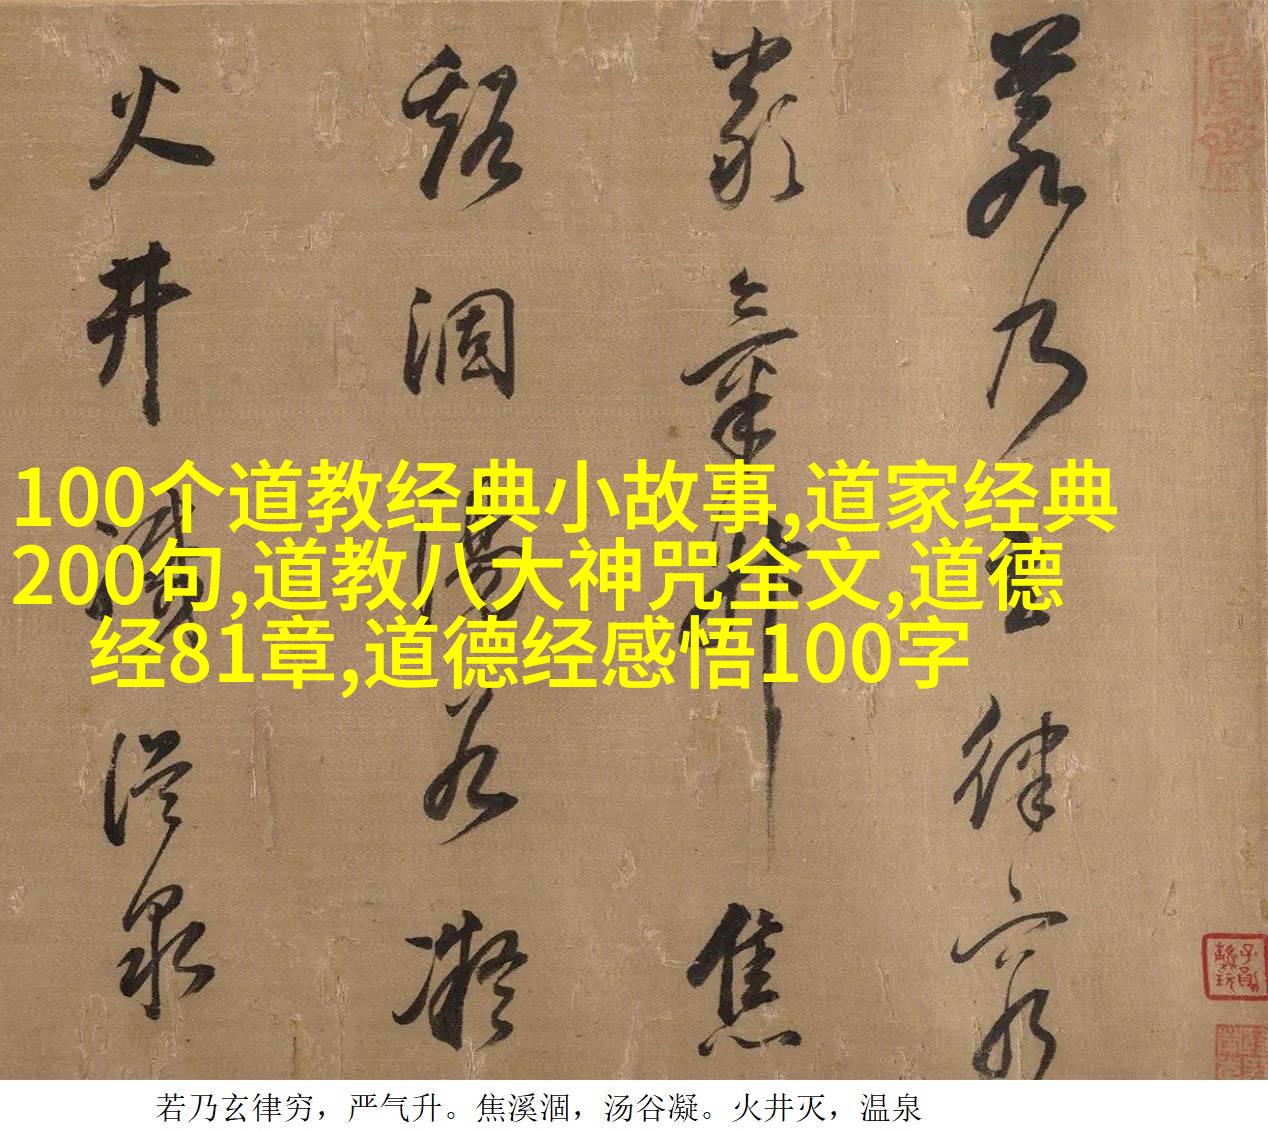 若乃玄律穷
严气升焦
溪涸汤谷凝
火井灭温泉
100个道教经典小故事,道家经典
200句,道教八大神咒全文,道德
经81章,道德经感悟100字
若乃玄律穷，严气升。焦溪涸，汤谷凝。火井灭，温泉